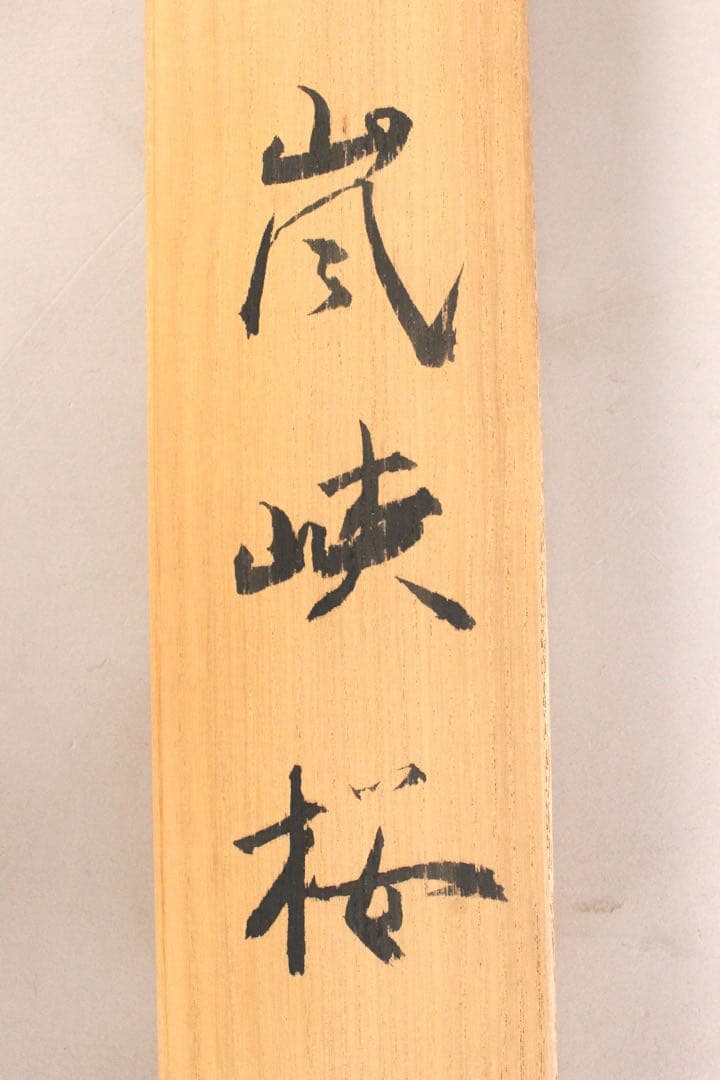 嵐峡桜